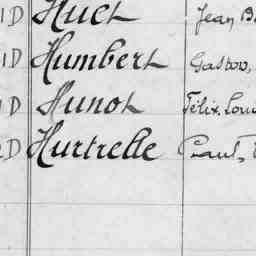 ID Huet Jean B
ID Humbert Gaston,
D Hunot Félix, Lou
D Hurtrelle Paul,